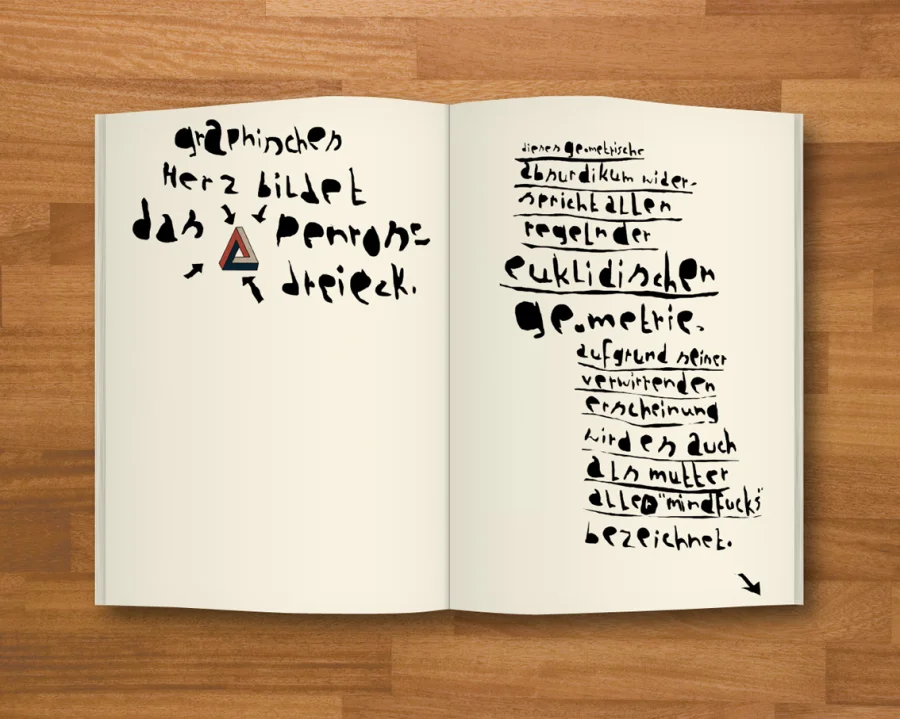 graphischen
Herz bildet
das Penrose-
dreieck.
dieses geometrische
absurdikum wider-
spricht allen
regeln der
euklidischen
geometrie.
aufgrund seiner
verwirrenden
erscheinung
wird es auch
als mutter
aller "mindfucks"
bezeichnet.